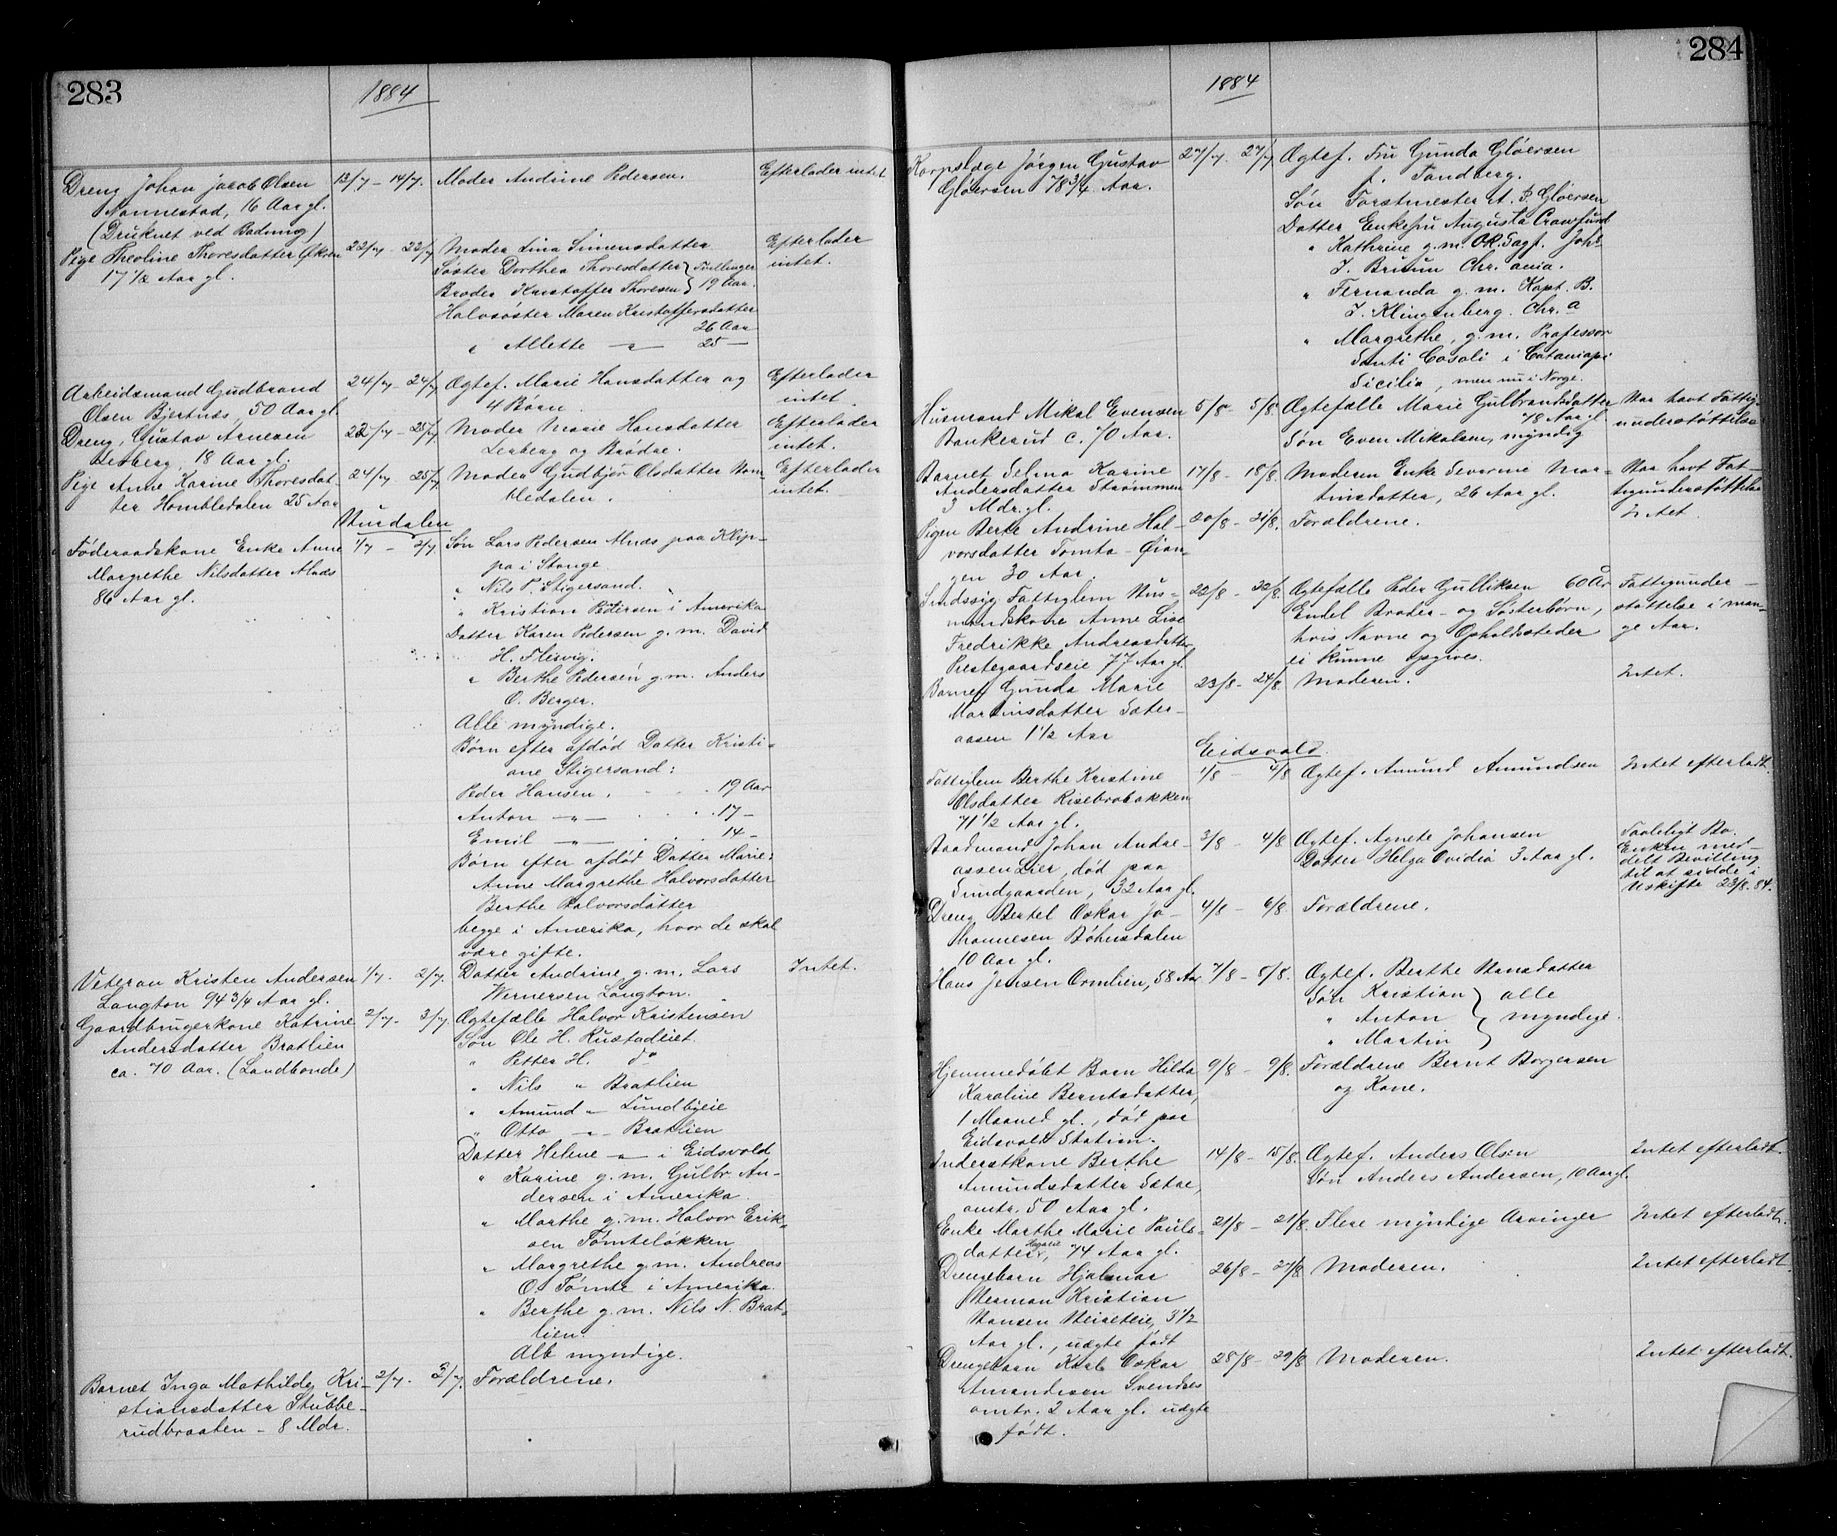 283
1884
Dreng Johan Jacob Olsen
Nannestad, 16 Aar gl.
(Druknet ved Badning)
13/7 - 14/7.
Moder Andrine Pedersen.
Efterlader intet
Pige Theoline Thoresdatter
17 1/2 Aar gl.
22/7 - 23/7
Moder Lina Simensdatter
Søster Dorthea Thoresdatter } Tvillinger
Broder Kristoffer Thoresen } 19 Aar.
Halvsøster Maren Kristoffersdatter
26 Aar
" Allette — " — 25 —
Efterlader
intet.
Arbeidsmand Gudbrand
Olsen Bjertnæs, 50 Aar gl.
24/7 - 24/7
Ægtef. Marie Hansdatter og
4 Børn.
Efterlader
intet.
Dreng, Gustav Arnesen
Lerberg, 18 Aar gl.
25/7 - 25/7
Moder Marie Hansdatter
Lerberg og Brødre.
Efterlader
intet.
Pige Anne Karine Thoresdat-
ter Hombledalen 25 Aar
24/7 - 25/7
Moder Gudbjør Olsdatter Hom-
bledalen.
Efterlader
intet.
Hurdalen
Føderaadskone Enke Anne
Margrethe Nilsdatter Alnæs
86 Aar gl.
1/7 - 2/7
Søn Lars Pedersen Alnæs paa Klip-
pa i Stange.
" Nils P. Stigersand.
" Kristian Pedersen i Amerika
Datter Karen Pedersen g. m. David
H. Flesvig.
" Berthe Pedersen g. m. Anders
O. Berger.
Alle myndige.
Børn efter afdød Datter Kristi-
ane Stigersand:
Peder Hansen . . . . 19 Aar
Anton — " — . . . 17 —
Emil — " — . . . 14 —
Børn efter afdød Datter Marie:
Anne Margrethe Halvorsdatter
Berthe Halvorsdatter
begge i Amerika, hvor de skal
være gifte.
Veteran Kristen Andersen
Langton 94 3/4 Aar gl.
1/7. 2/7.
Datter Andrine g. m. Lars
Wernersen Langton.
Intet.
Gaardbrugerkone Katrine
Andersdatter Bratlien
ca. 70 Aar. (Landbonde)
2/7 - 3/7.
Ægtefælle Halvor Kristensen
Søn Ole H. Rustadeiet.
" Petter H. do
" Nils " Bratlien
" Amund " Lundbyeie
" Otto " Bratlien
Datter Helene " i Eidsvold
" Karine g. m. Gulbr. An-
dersen i Amerika
" Marthe g. m. Halvor Erik-
sen Tømteløkken
" Margrethe g. m. Andreas
O. Tømte i Amerika.
" Berthe g. m. Nils N. Brat-
lien.
Alle myndige.
Barnet Inga Mathilde Kri-
stiansdatter Stubbe-
rudbraaten - 8 Mdr.
2/7. 3/7.
Forældrene.
284
1884
Korpslæge Jørgen Gustav
Gløersen 78 3/4 Aar.
27/7. 27/7
Ægtef. Fru Gunda Gløersen
f. Tandberg.
Søn Forstmester A. T. Gløersen
Datter Enkefru Augusta Crawfurd
" Kathrine g. m. O.R.Sagf. Johs
I. Bruun Chr.ania.
" Fernanda g. m. Kapt. B.
I. Klingenberg. Chr.a
" Margrethe, g. m. Professor
Santi Casoli i Cataniapi
Sicilia, men nu i Norge.
Husmand Mikal Evensen
Bankerud c. 70 Aar.
5/8 - 5/8
Ægtefælle Marie Gulbrandsdatter
78 Aar gl.
Søn Even Mikalsen, myndig
Har havt Fattig-
understøttelse
Barnet Selma Karine
Andersdatter Strømmen
3 Mdr. gl.
17/8 - 18/8.
Moderen Enke Severine Mar-
tinsdatter, 26 Aar gl.
Har havt Fat-
tigunderstøttelse
Pigen Berte Andrine Hal-
vorsdatter Tomta - Øian-
gen 30 Aar.
20/8 - 21/8.
Forældrene.
Intet.
Sindssyg Fattiglem Hus-
mandskone Anne Lise
Fredrikke Andreasdatter
Prestegaardseie 77 Aar gl.
22/8 - 22/8.
Ægtefælle Peder Gulliksen 60 År
Endel Broder- og Søsterbørn,
hvis Navne og Opholdssteder
ei kunne opgives.
Fattigunder-
støttelse i man-
ge Aar.
Barnet Gunda Marie
Martinsdatter Sæter-
aasen 1 1/2 Aar
23/8 - 24/8.
Moderen.
Intet.
Eidsvold
Fattiglem Berthe Kristine
Olsdatter Risebrobakken
71 1/2 Aar gl.
1/8 - 4/8
Ægtef. Amund Amundsen
Intet efterladt.
Baadmand Johan Andre-
assen Lier, død paa
Sundgaarden, 32 Aar gl.
3/8 - 4/8
Ægtef. Agnete Johansen
Datter Helga Ovidia 3 Aar gl.
Taaleligt Bo.
Enken med-
delt Bevilling
til at sidde i
Uskifte 23/8. 84.
Dreng Bertel Oskar Jo-
hannesen Bøhnsdalen
10 Aar gl.
4/8 - 6/8
Forældrene.
Hans Jensen Ormlien, 58 Aar
7/8 - 8/8.
Ægtef. Berthe Hansdatter
Søn Kristian } alle
" Anton } myndige.
" Martin }
Hjemmedøbt Barn Hilda
Karoline Berntsdatter,
1 Maaned gl., død paa
Eidsvold Station.
9/8 - 9/8.
Forældrene Bernt Borgersen
og Kone.
Inderstkone Berthe
Amundsdatter Sætre,
omtr. 50 Aar gl.
14/8 - 15/8.
Ægtef. Anders Olsen
Søn Anders Andersen, 10 Aar gl.
Intet efterladt.
Enke Marthe Marie Pauls-
datter, 74 Aar gl.
21/8 - 21/8.
Flere myndige Arvinger
Intet efterladt.
Drengebarn Hjalmar
Herman Kristian
Hansen Heireteie, 3 1/2
Aar gl., uægte født
26/8 - 27/8
Moderen.
Intet efterladt.
Drengebarn Karl Oskar
Amandsen Svendses
omtr. 2 Aar gl. uægte
født.
28/8 - 29/8
Moderen.
Intet efterladt.